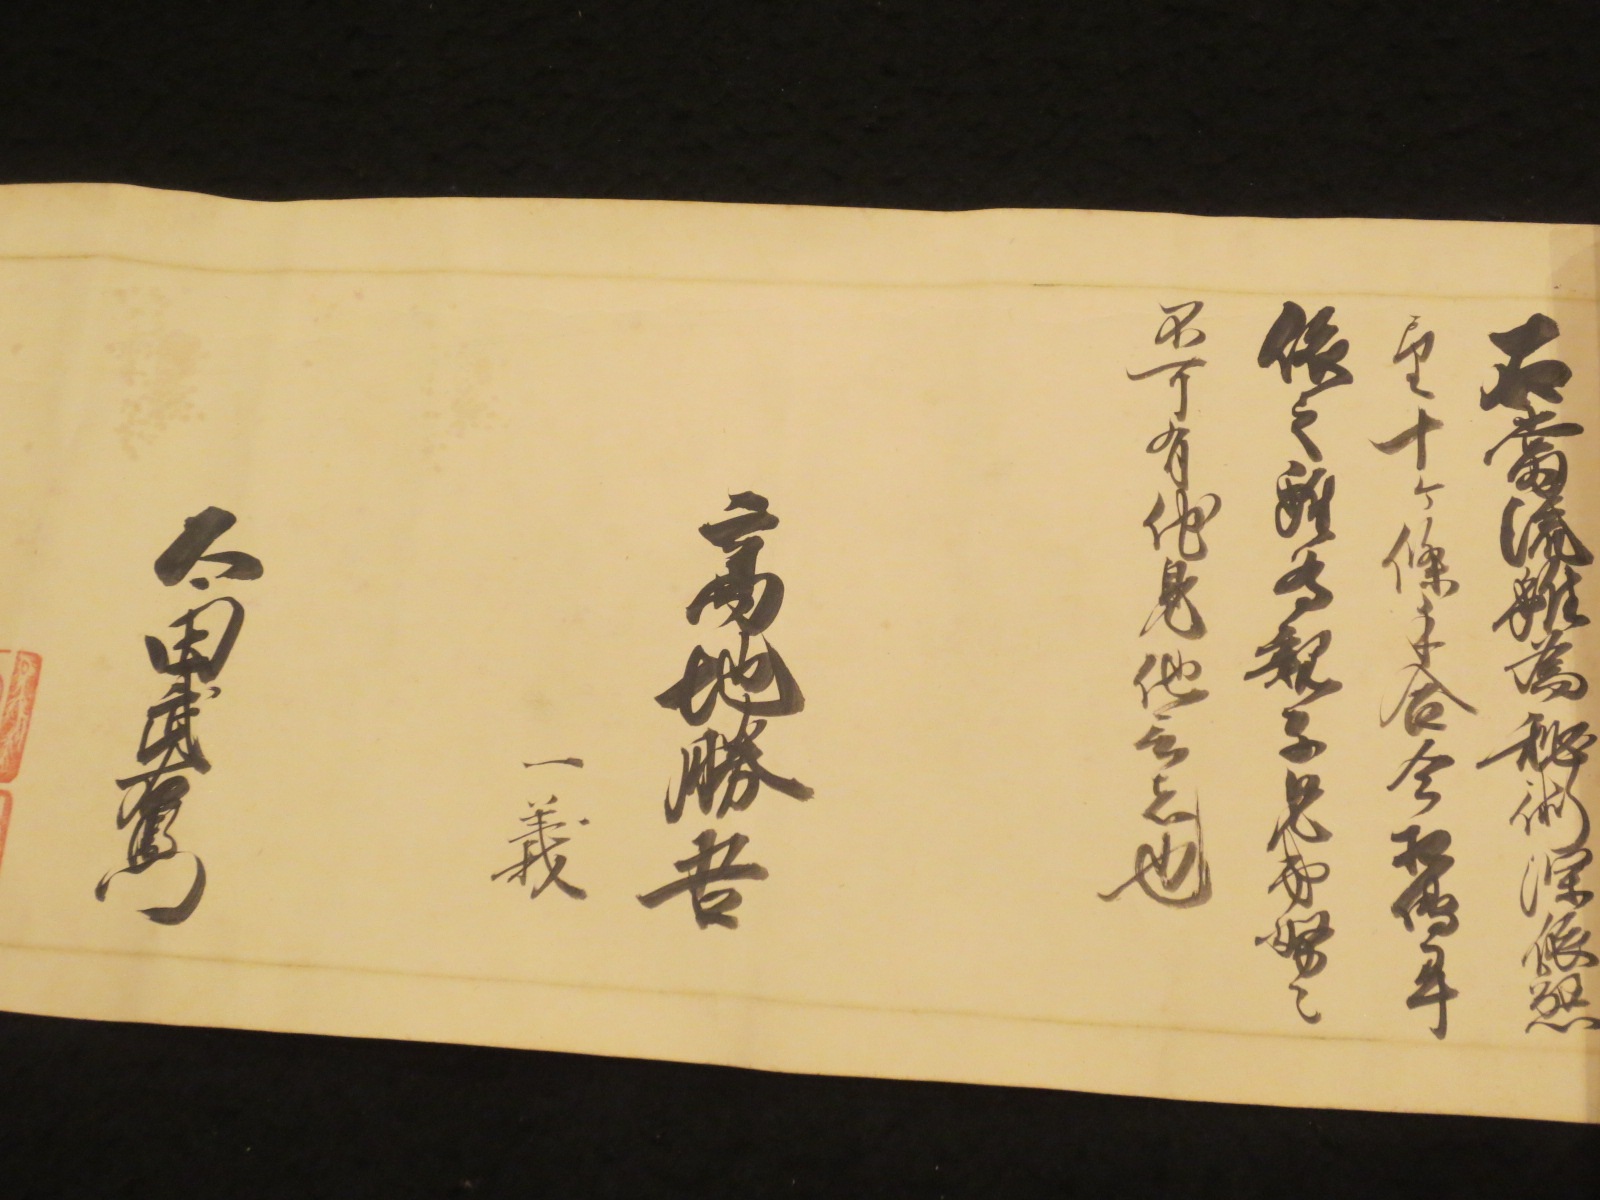 右當流雖為秘術深依懇
望十ケ條手合令相傳畢
依之雖為親子兄弟努〻
不可有他見他言者也
高地勝吾
一義
太田武右衛門